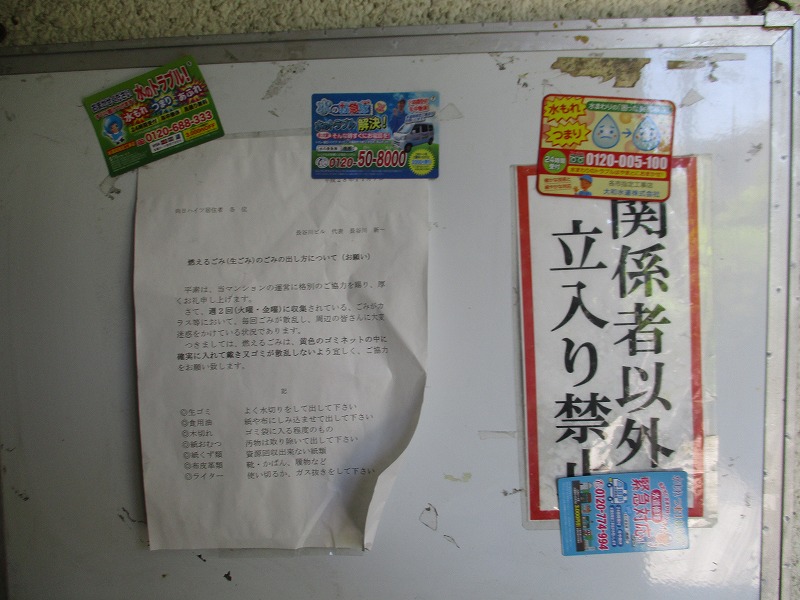 水のトラブル!
水もれ つまり
0120-688-333
解決!
0120-50-8000
水もれ
つまり
24時間
受付
0120-005-100
市水道局指定工事店
大和水道株式会社
関係者以外
立入り禁止
緊急対応
0120-774-994
各位
長谷川ビル 代表 長谷川
燃えるごみ(生ごみ)のごみの出し方について(お願い)
平素は、当マンションの運営に格別のご協力を賜り、厚
くお礼申し上げます。
さて、週2回(火曜・金曜)に収集されている、ごみがカ
ラス等において、毎回ごみが散乱し、周辺の皆さんに大変
迷惑をかけている状況であります。
つきましては、燃えるごみは、黄色のゴミネットの中に
確実に入れて戴き又ゴミが散乱しないよう宜しく、ご協力
をお願い致します。
記
◎生ゴミ よく水切りをして出して下さい
◎食用油 紙や布にしみ込ませて出して下さい
◎木切れ ゴミ袋に入る程度のもの
◎紙おむつ 汚物は取り除いて出して下さい
◎紙くず類 資源回収出来ない紙類
◎布皮革類 靴・かばん、履物など
◎ライター 使い切るか、ガス抜きをして下さい